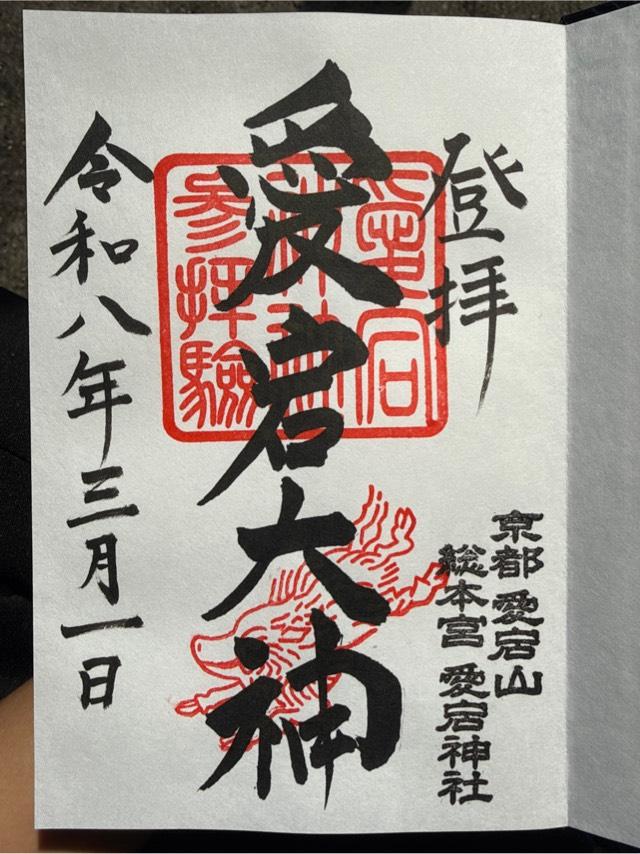 登拝
京都 愛宕山
総本宮 愛宕神社
愛宕大神
愛宕
神社
参拝験
令和八年三月一日